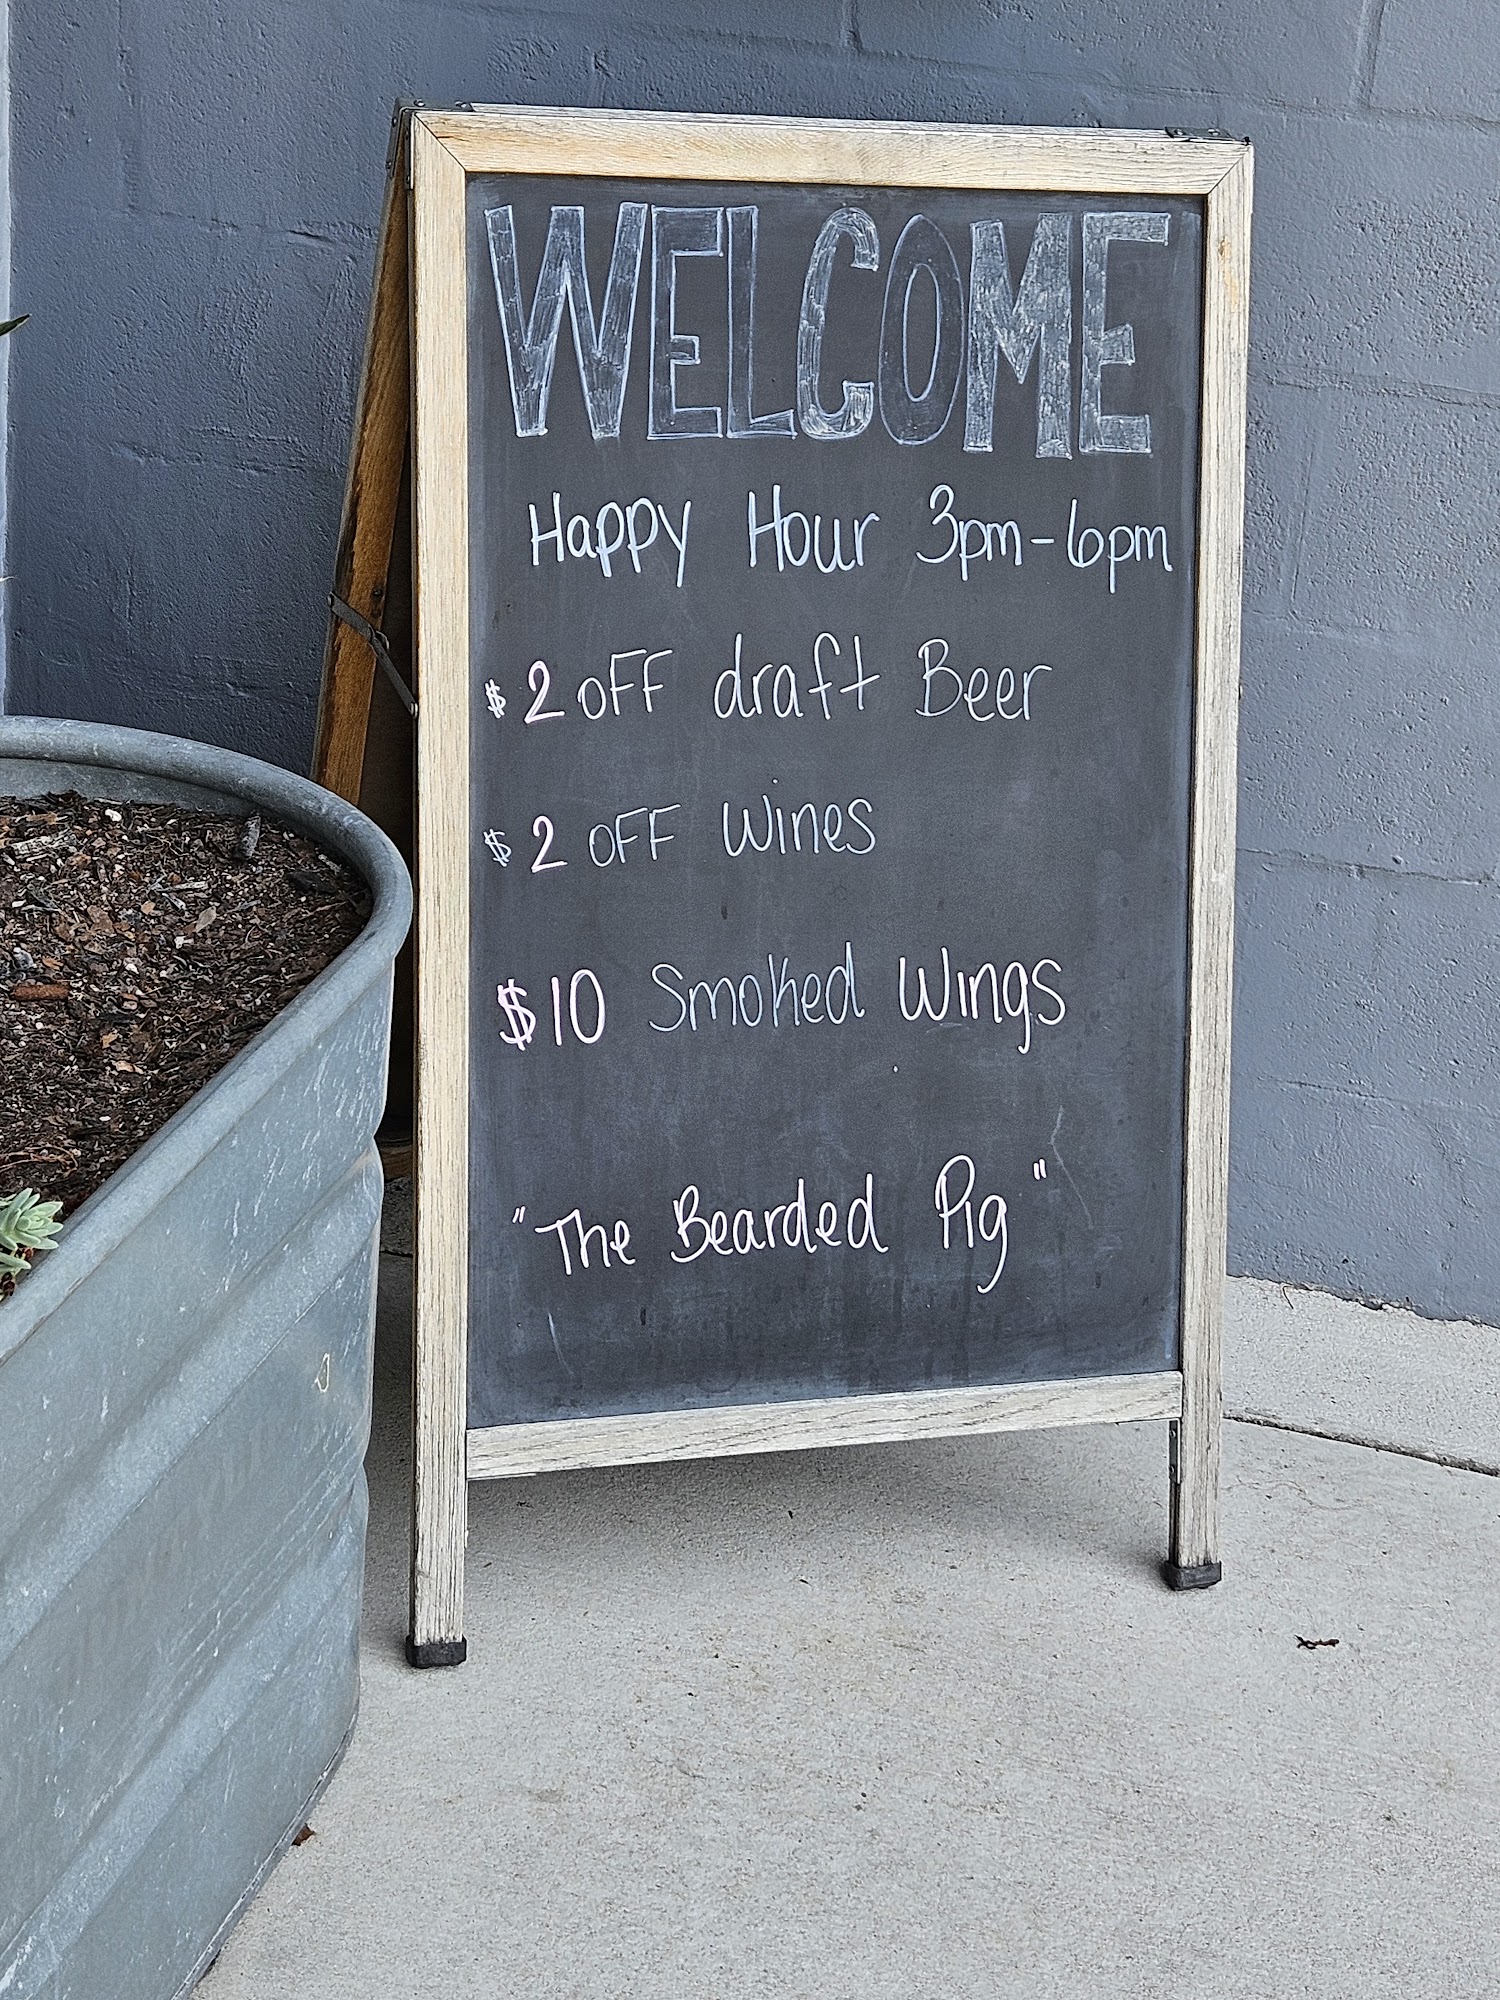 WELCOME
Happy Hour 3pm-6pm
$2 OFF draft Beer
$2 OFF Wines
$10 Smoked Wings
"The Bearded Pig"